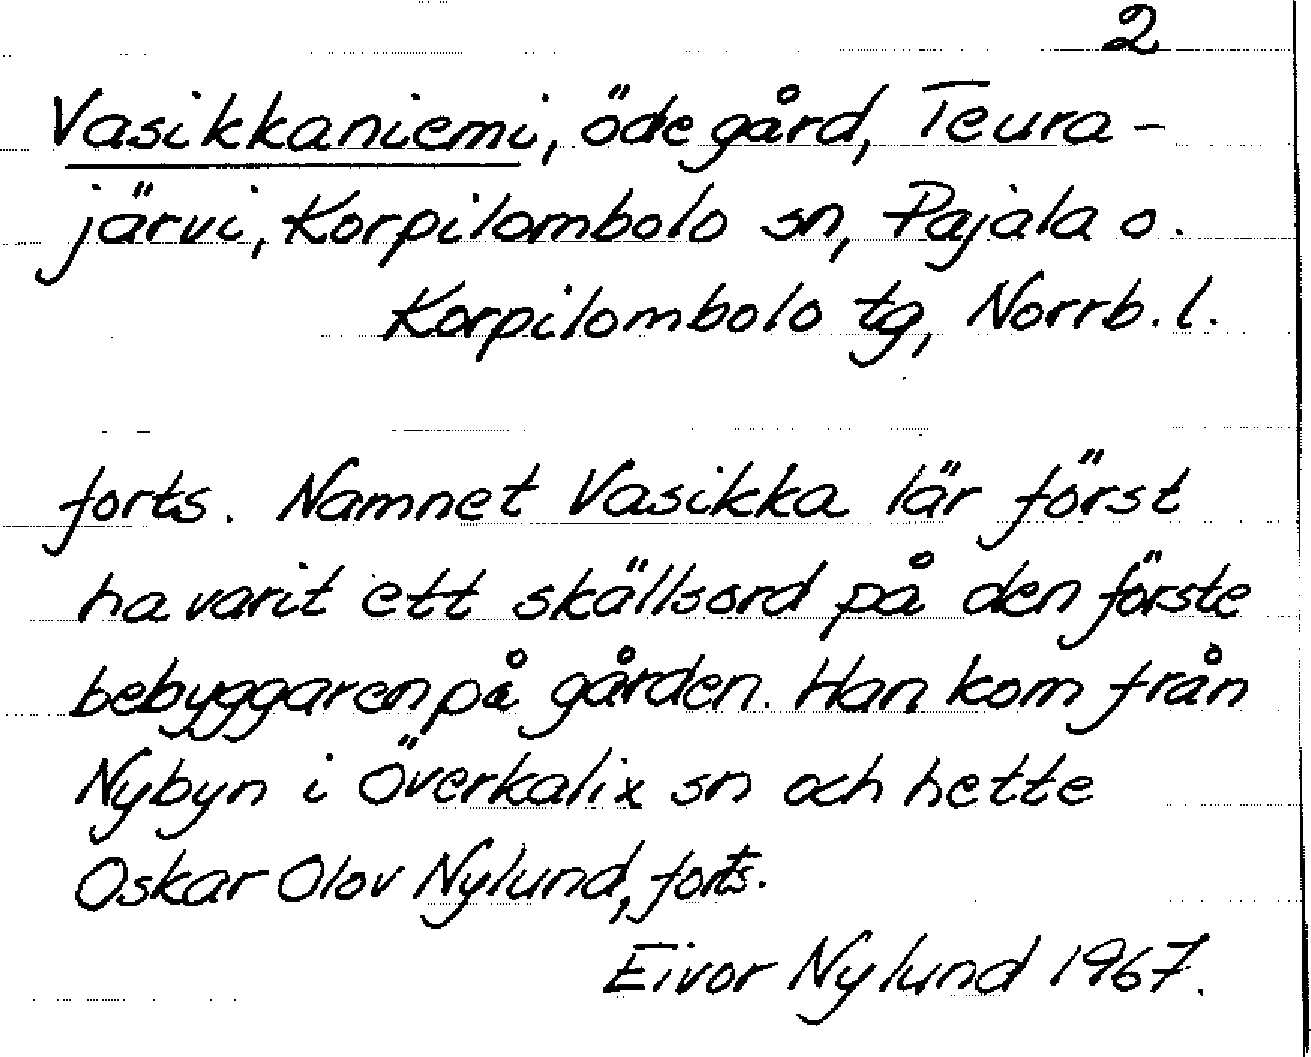 2
Vasikkaniemi, ödegård, Teura-
järvi, Korpilombolo sn, Pajala o.
Korpilombolo tg, Norrb. l.
forts. Namnet Vasikka lär först
ha varit ett skällsord på den förste
bebyggaren på gården. Han kom från
Nybyn i Överkalix sn och hette
Oskar Olov Nylund, forts.
Eivor Nylund 1967.